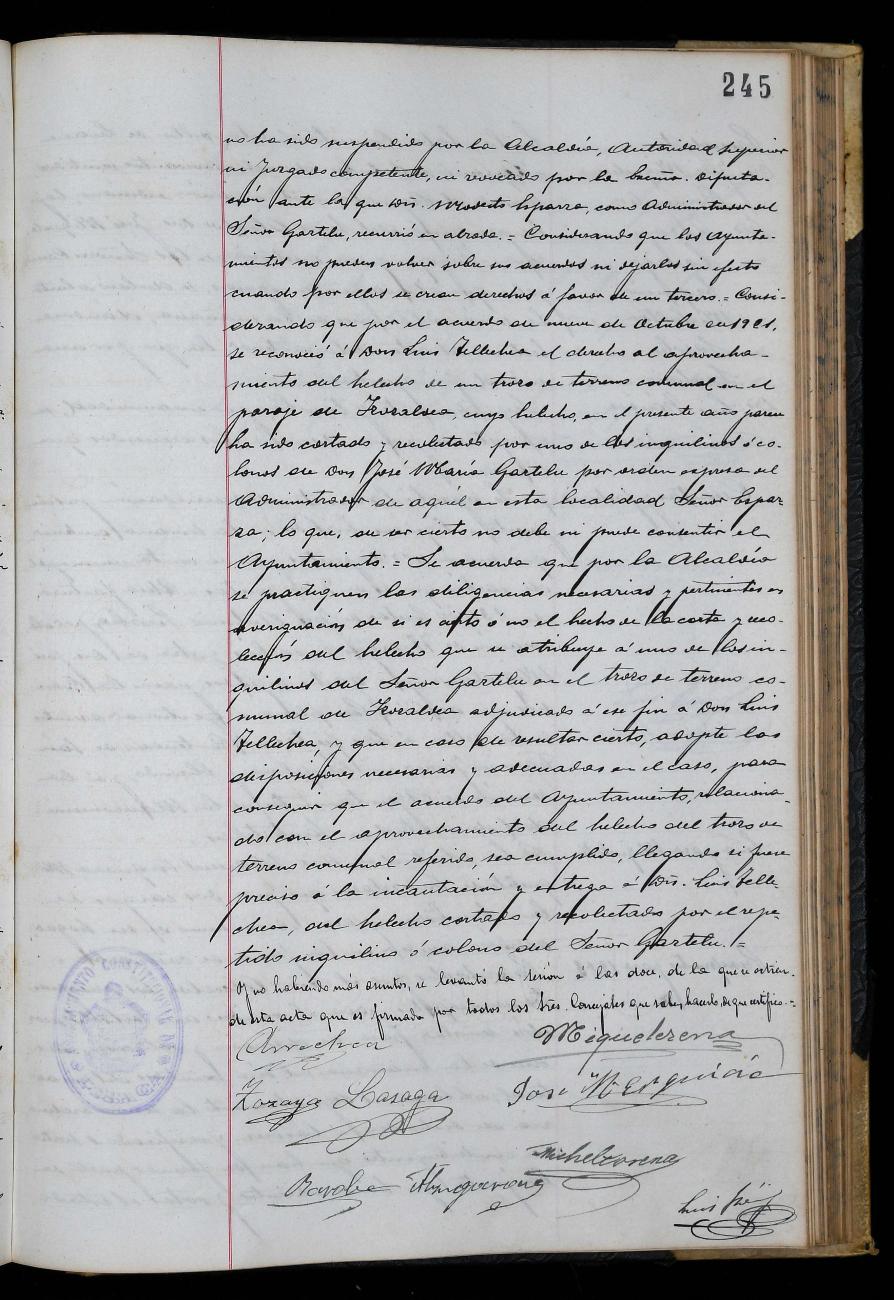 245
no ha sido suspendido por la Alcaldía, Autoridad superior
ni Juzgado competente, ni revocado por la Excma. Diputa-
ción ante la que Dn. Modesto Esparza, como Administrador del
Señor Gartelu, recurrió en alzada.= Considerando que los Ayunta-
mientos no pueden volver sobre sus acuerdos ni dejarlos sin efecto
cuando por ellos se crean derechos á favor de un tercero.= Consi-
derando que por el acuerdo de nueve de Octubre de 1901,
se reconoció á Don Luis Tellechea el derecho al aprovecha-
miento del helecho de un trozo de terreno comunal en el
paraje de Zozaldea, cuyo helecho, en el presente año parece
ha sido cortado y recolectado por uno de los inquilinos ó co-
lonos de Don José María Gartelu por orden expresa del
Administrador de aquél en esta localidad Señor Espar-
za; lo que, de ser cierto no debe ni puede consentir el
Ayuntamiento.= Se acuerda que por la Alcaldía
se practiquen las diligencias necesarias y pertinentes en
averiguación de si es cierto ó no el hecho de la corta y reco-
lección del helecho que se atribuye á uno de los in-
quilinos del Señor Gartelu en el trozo de terreno co-
munal de Zozaldea adjudicado á ese fin á Don Luis
Tellechea, y que en caso de resultar cierto, adopte las
disposiciones necesarias y adecuadas en el caso, para
conseguir que el acuerdo del Ayuntamiento, relaciona-
do con el aprovechamiento del helecho del trozo de
terreno comunal referido, sea cumplido, llegando si fuere
preciso á la incautación y entrega á Dn. Luis Telle-
chea, del helecho cortado y recolectado por el repe-
tido inquilino ó colono del Señor Gartelu.=
Y no habiendo más asuntos, se levanto la sesión á las doce, de la que se extien-
de esta acta que es firmada por todos los Sres. Concejales que saben hacerlo, de que certifico.=
Arrechea
Miquelerena
Zozaya Lasaga
José
Michelcorena
Luis
AYUNTAMIENTO CONSTITUCIONAL DE
LESACA